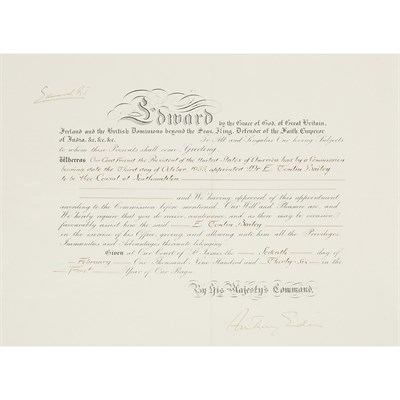 Edward R.I.
Edward by the Grace of God, of Great Britain,
Ireland and the British Dominions beyond the Seas, King, Defender of the Faith, Emperor
of India, &c. &c. &c. To All and Singular Our loving Subjects
to whom these Presents shall come Greeting.
Whereas Our Good friend the President of the United States of America has by a Commission
bearing date the Third day of October, 1935, appointed Mr. E.
to be Consul at Southampton
and We having approved of this appointment
according to the Commission before mentioned, Our Will and Pleasure are, and
We hereby require that you do receive, countenance, and as there may be occasion
favourably assist him the said E.
in the exercise of his Office, giving and allowing unto him all the Privileges,
Immunities and Advantages thereunto belonging.
Given at Our Court of St. James, the day of
February One Thousand Nine Hundred and Thirty Six in the
First Year of Our Reign.
By His Majesty's Command.
Anthony Eden